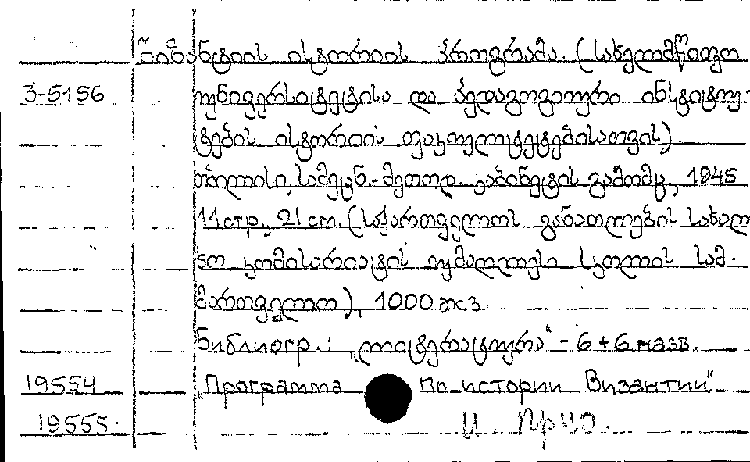 ბიზანტიის ისტორიის პროგრამა. (სახელმწიფო
3-5156 უნივერსიტეტისა და პედაგოგიური ინსტიტუ-
ტების ისტორიის ფაკულტეტებისათვის)
თბილისი, სამეცნ.-მეთოდ. კაბინეტის გამომც., 1945
11 стр., 21 см. (საქართველოს განათლების სახალ
ხო კომისარიატის უმაღლესი სკოლის სამ-
მართველო), 1000 экз.
Библиогр.: „ლიტერატურა" - 6 + 6 назв.
19554 „Программа по истории Византии"
19555.